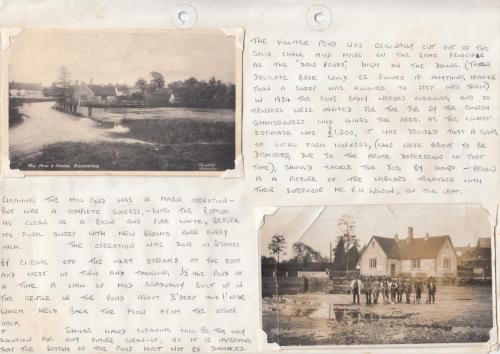 THE VILLAGE POND WAS ORIGINALLY CUT OUT OF THE
SOLID CHALK AND MADE ON THE SAME PRINCIPLE
AS THE 'DEW PONDS', HIGH ON THE DOWNS. (THEIR
DELICATE BASE COULD BE RUINED IF ANYTHING HEAVIER
THAN A SHEEP WAS ALLOWED TO STEP INTO THEM)
IN 1934 THE POND BADLY NEEDED CLEANING, AND SO
TENDERS WERE INVITED FOR THE JOB BY THE CHURCH
COMMISSIONERS WHO OWNED THE AREA. AS THE LOWEST
ESTIMATE WAS £1,200, IT WAS DECIDED THAT A GANG
OF LOCAL FARM WORKERS, (WHO WERE ABOUT TO BE
DISMISSED, DUE TO THE ACUTE DEPRESSION OF THAT
TIME), SHOULD TACKLE THE JOB BY HAND. - BELOW
IS A PICTURE OF THE WORKERS TOGETHER WITH
THEIR SUPERVISOR MR. R.H. WILSON, ON THE LEFT.
MILL POND & SCHOOL BISHOPSTONE
CLEANING THE MILL POND WAS A MAJOR OPERATION -
BUT WAS A COMPLETE SUCCESS, - WITH THE BOTTOM
AS CLEAN AS A BASIN AND PURE WHITE, BEFORE
ITS FINAL SWEEP WITH NEW BROOMS OVER EVERY
INCH. THE OPERATION WAS DONE IN STAGES
BY CLOSING OFF THE INLET STREAMS AT THE EAST
AND WEST IN TURN AND TACKLING ½ THE POND AT
A TIME. A WALL OF MUD GRADUALLY BUILT UP IN
THE CENTRE OF THE POND ABOUT 3' DEEP AND 1' WIDE
WHICH HELD BACK THE FLOW FROM THE OTHER
HALF.
SIMILAR HAND CLEANING WILL BE THE ONLY
SOLUTION FOR ANY FUTURE CLEAN-UP, AS IT IS IMPERATIVE
THAT THE BOTTOM OF THE POND MUST NOT BE DAMAGED.